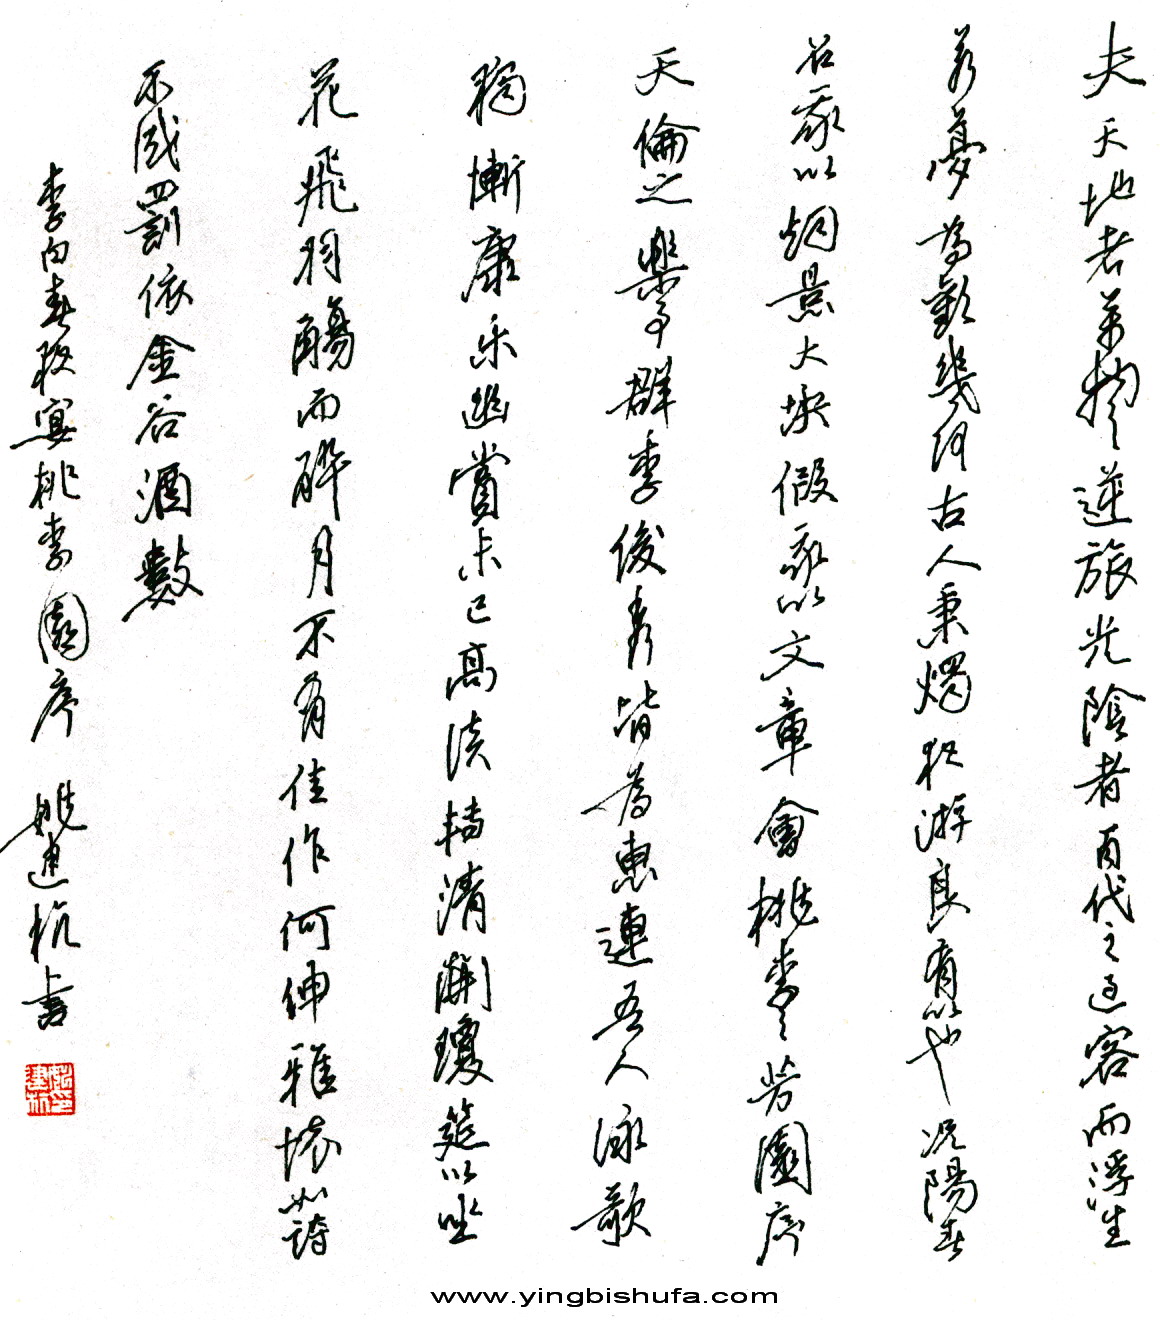 夫天地者萬物之逆旅光陰者百代之過客而浮生
若夢為歡幾何古人秉燭夜游良有以也况陽春
召我以烟景大塊假我以文章會桃李之芳園序
天倫之樂事群季俊秀皆為惠連吾人詠歌
獨慚康乐幽賞未已高談轉清開瓊筵以坐
花飛羽觴而醉月不有佳作何伸雅懷如詩
不成罰依金谷酒數
李白春夜宴桃李園序 姚建杭書
姚建杭印
www.yingbishufa.com